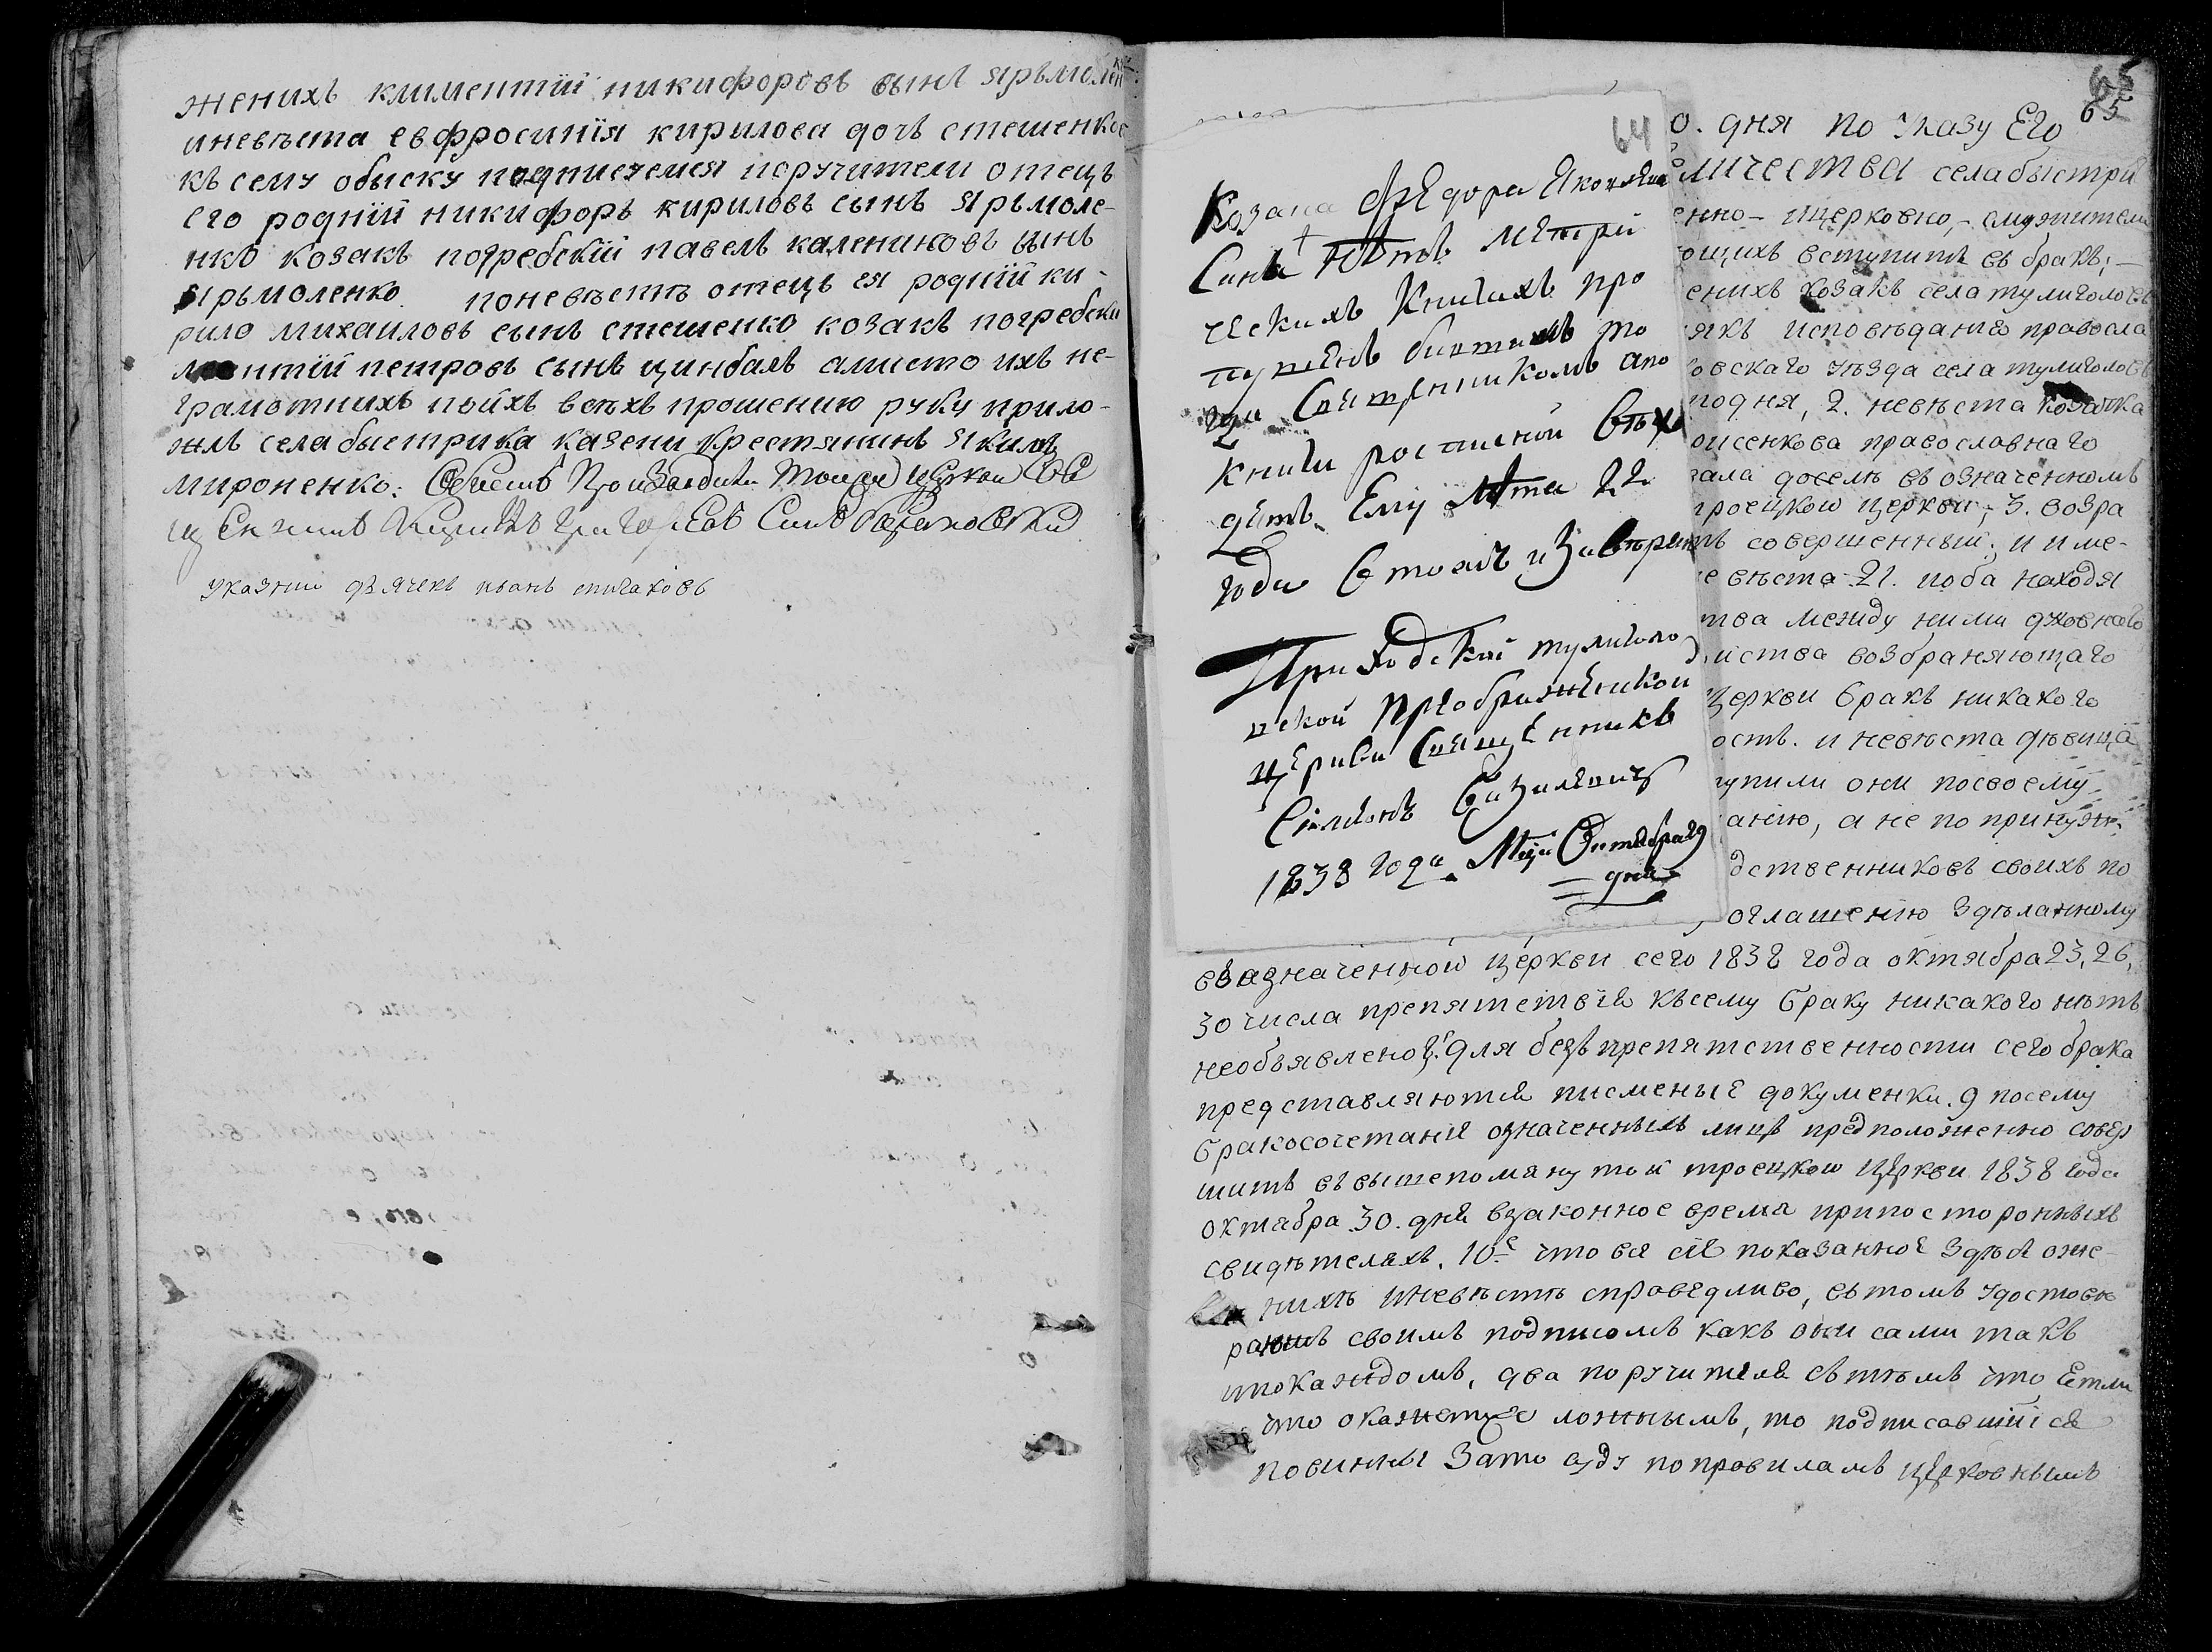 женихъ климентій никифоровъ сынъ ярьмолен
ко
иневѣста евфросинія кирилова дочь стешенков
къ сему обыску подписуемся поручители отецъ
его родній никифоръ кириловъ сынъ ярьмоле-
нко козакъ погребскій павелъ калениковъ сынъ
ярьмоленко поневѣстѣ отецъ ея родній ки-
рило михаиловъ сынъ стешенко козакъ погребски
петровъ сынъ цинбалъ амисто ихъ не-
грамотнихъ поихъ всѣхъ прошению руку прило-
жлъ села быстрика казени крестянинъ якимъ
мироненко: Обыскъ Производилъ тоией церкви Свя
щенникъ Григорѣевъ Синъ
указнии дячекъ иванъ
64
Козака Федора Яковлева
Сина Нѣтъ Метри
ческихъ Книгахъ про
пущенъ битшимъ то
гда Священникомъ апо
книги росписной
дѣтъ Ему Лѣта 22
года Втомъ иЗавѣряю
Приходской тулиголо
вской преображенской
церкви Священникъ
Симеонъ Базилевичъ
1838 года Мца Октября 29
дня
65
65
0. дня по указу Его
личества села быстри
енно- ицерковно,- служители
ющихъ вступить въ бракъ;-
енихъ козакъ села тулиголовъ
якъ исповѣданія правосла
овскаго уѣзда села тулиголовъ
подня, 2. невѣста козачка
оисенкова православнаго
вала доселѣ въ означенномъ
троецкой церкви; 3. возра
тъ совершенный; и име-
невѣста 21. иоба находя
тва между ними духовного
йства возбраняющаго
церкви бракъ никакого
ость. и невѣста дѣвица
тупили они посвоему
анію, а не по принуж-
дственниковъ своихъ по
оглашенію здѣланному
вьазначенной церкви сего 1838 года октября 23, 26,
30 числа препятствія къ сему браку никакого нѣтъ
необъявлено для безъпрепятственности сего брака
представляются писменые докуменки. 9 посему
бракосочетанія означенныхъ лицъ предположенно совер
шить въ вышепомянутой троецкой церкви 1838 года
октября 30. дня взаконное время припосторонныхъ
свидѣтеляхъ. 10е что вся сіе показанное здѣсѣ оже-
нихѣ иневѣстѣ справедливо, въ томъ удостовѣ
раютъ своимъ подписомъ какъ они сами такъ
ипокаждомъ, два поручителя сътѣмъ что Естли
что окажется ложнымъ, то подписавшійся
повинны Зато суду поправиламъ церковнымъ